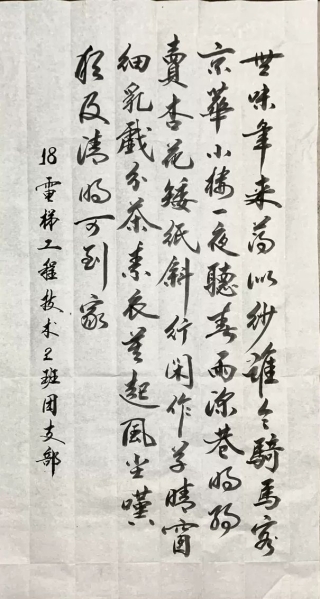 世味年来薄似纱誰令騎馬客
京華小楼一夜聽春雨深巷明朝
賣杏花矮紙斜行闲作草晴窗
细乳戲分茶素衣莫起風尘嘆
犹及清明可到家
18電梯工程技术2班团支部